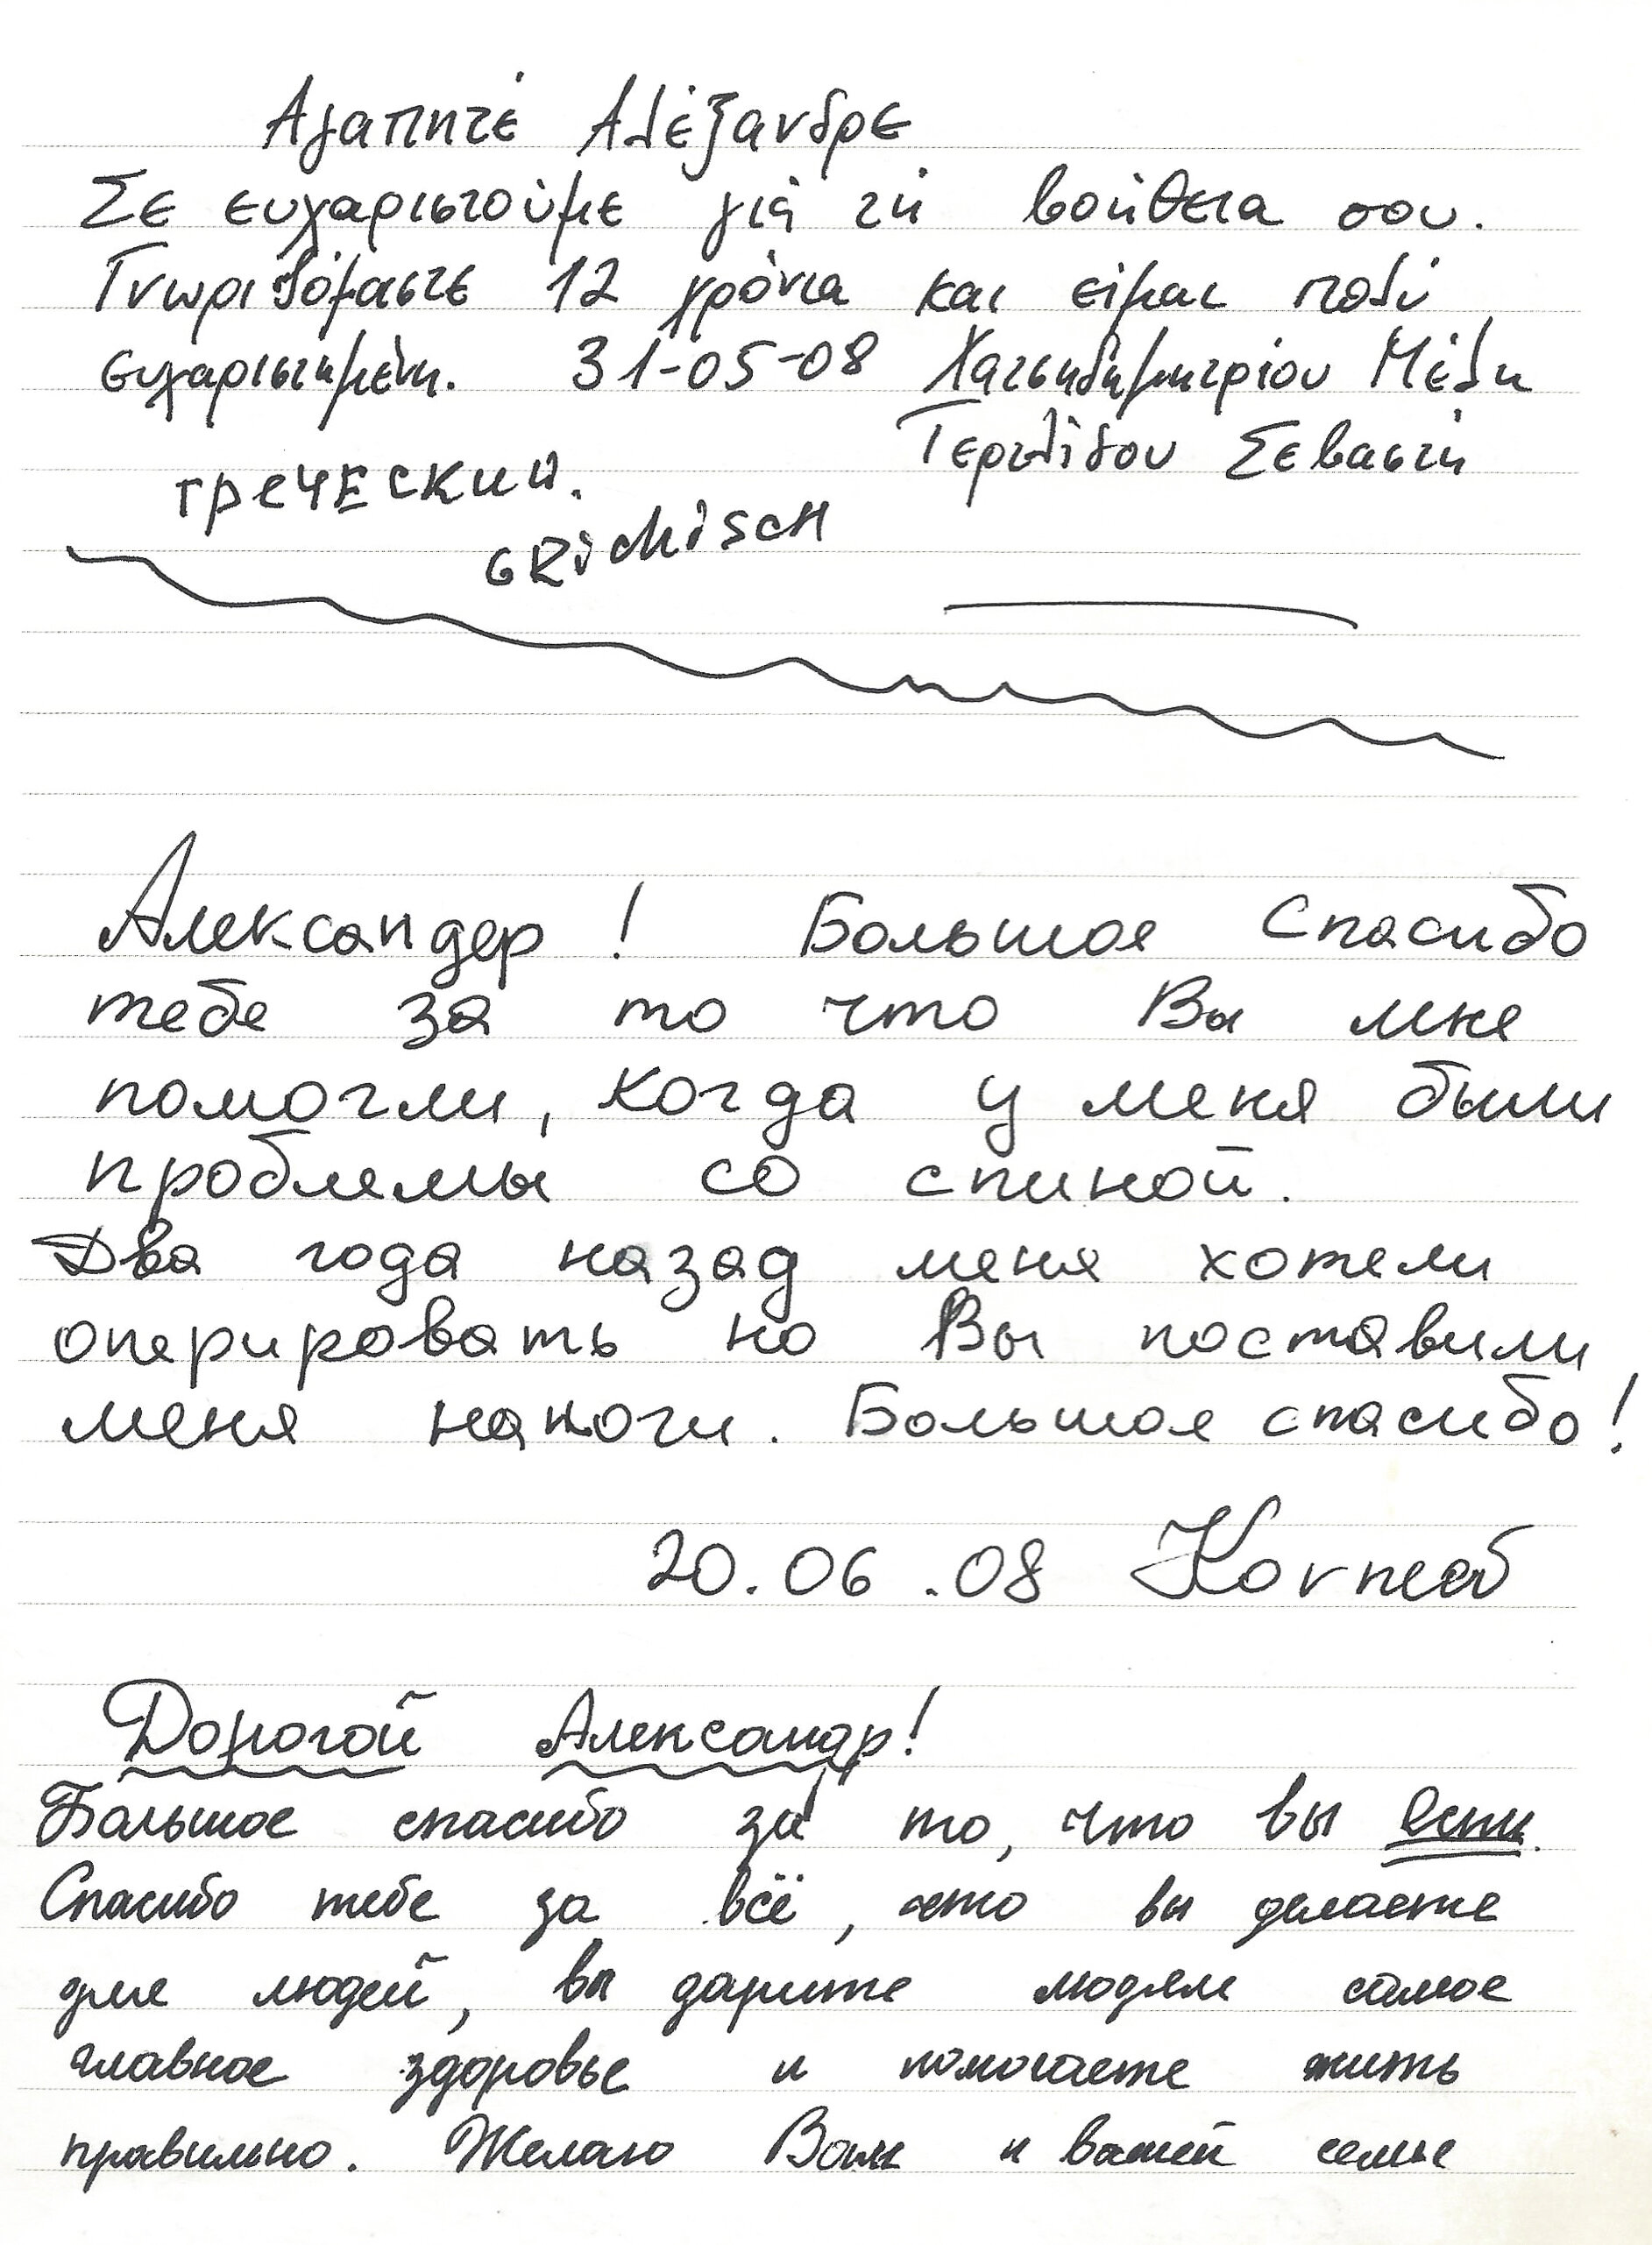 Αγαπητέ Αλέξανδρε
Σε ευχαριστούμε γιά τή βοήθεια σου.
Γνωριζόμαστε 12 χρόνια και είμαι πολύ
ευχαριστημένη. 31-05-08 Χατσηδημητρίου Μέλη
Σεβαστή
греческий.
GRichisch
Александер! Большое Спасибо
тебе за то что Вы мне
помогли, когда у меня были
проблемы со спиной.
Два года назад меня хотели
оперировать но Вы поставили
меня на ноги. Большое спасибо!
20.06.08
Дорогой Александр!
Большое спасибо за то, что вы есть.
Спасибо тебе за всё, что вы делаете
для людей, вы дарите людям самое
главное здоровье и помогаете жить
правильно. Желаю Вам и вашей семье